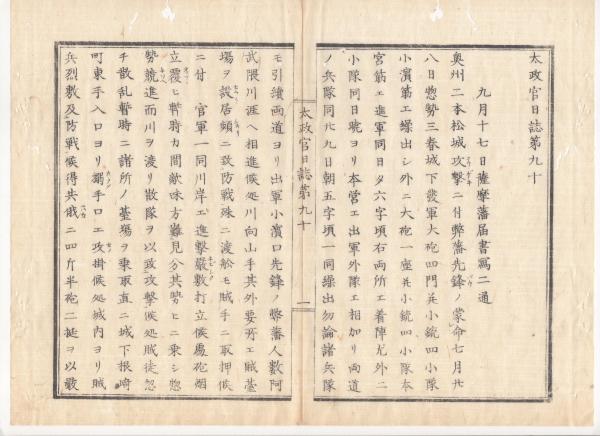 太政官日誌第九十
九月十七日薩摩藩届書寫二通
奥州二本松城攻擊ニ付弊藩先鋒ノ蒙命七月廿
八日惣勢三春城下發軍大砲四門并小銃四小隊
小濵筋エ繰出シ外ニ大砲一座并小銃四小隊本
宮筋エ進軍同日夕六字頃右兩所エ着陣尤外ニ
小隊同日暁ヨリ本營エ出軍外隊エ相加リ両道
ノ兵隊同廿九日朝五字頃一同繰出勿論諸兵隊
太政官日誌第九十
一
モ引續両道ヨリ出軍小濵口先鋒ノ弊藩人數阿
武隈川涯ヘ相進候処川向山手其外要所エ賊臺
場ヲ設居頻ニ致防戰殊ニ渡舩モ賊手ニ取押候
ニ付官軍一同川岸エ進擊嚴敷打立候處砲烟
立覆ヒ暫時カ間敵味方難見分其勢ヒニ乗シ惣
勢競進而川ヲ渡リ散隊ヲ以致攻擊候処賊徒忽
チ散乱暫時ニ諸所ノ臺場ヲ乗取直ニ城下根崎
町東手入口ヨリ搦手口エ攻掛候処城内ヨリ賊
兵烈敷及防戰候得共俄ニ四斤半砲二挺ヲ以數